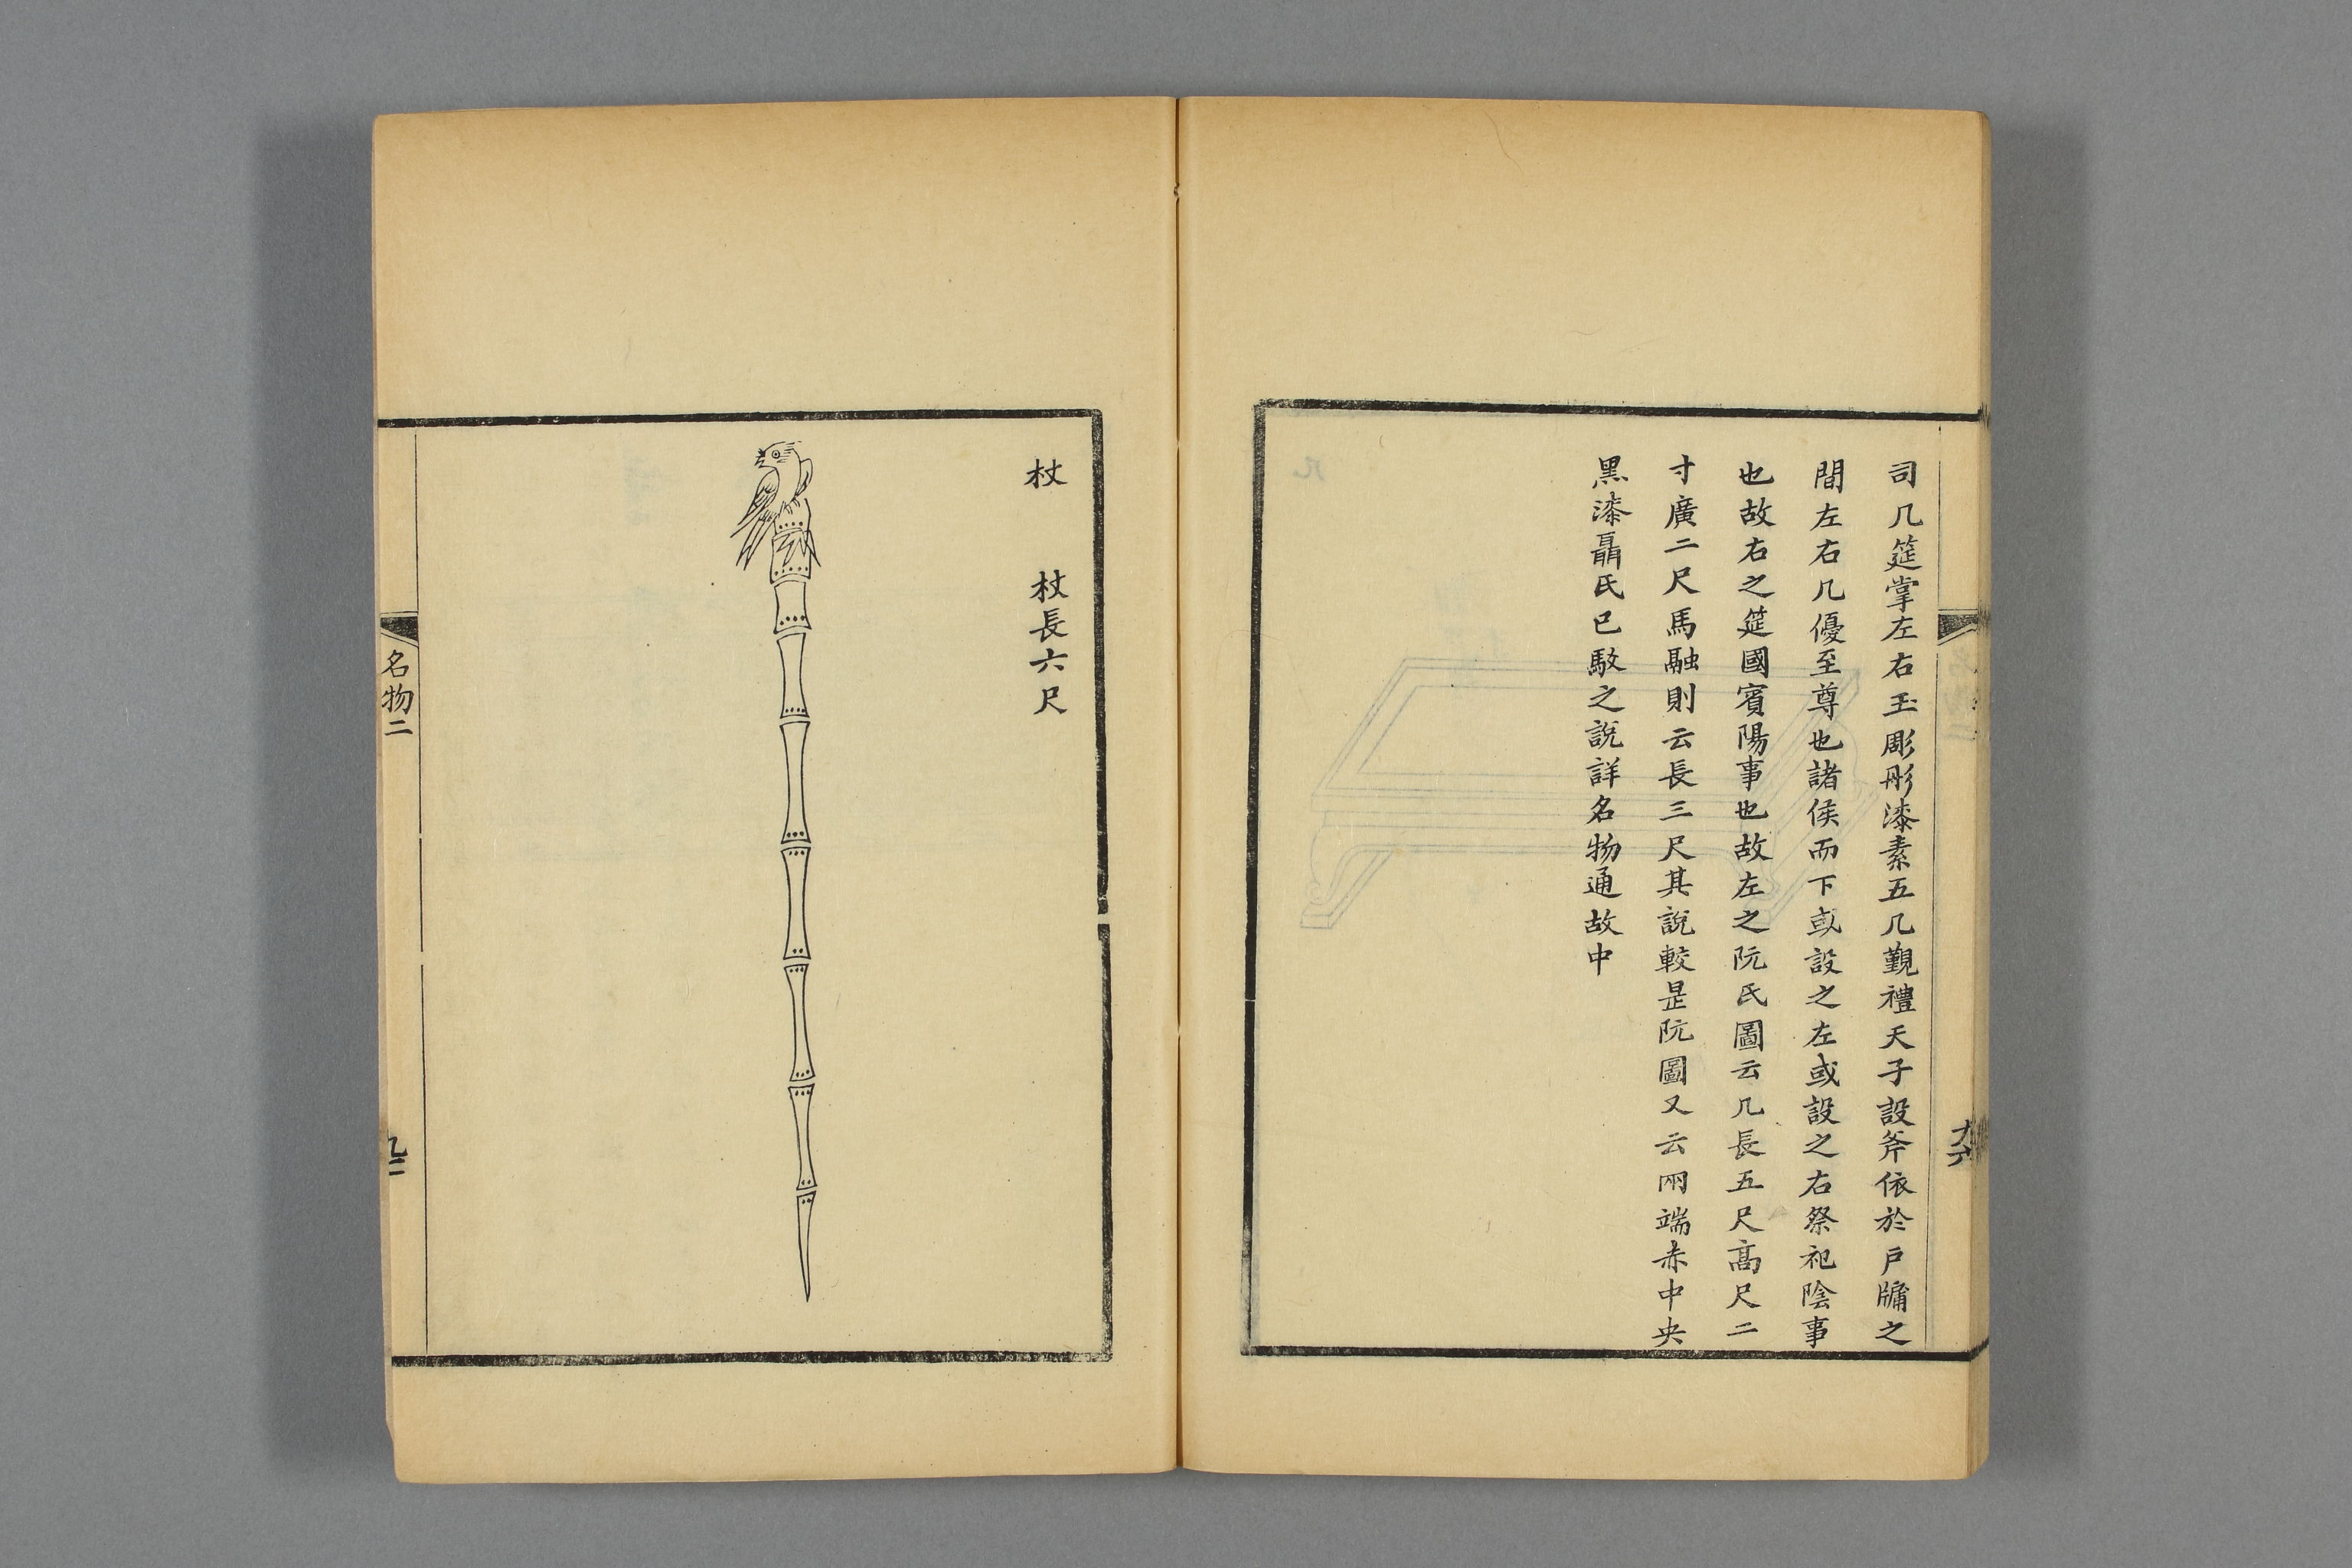 司几筵掌左右玉彫彤漆素五几覲禮天子設斧依於戶牖之
間左右几優至尊也諸侯而下或設之左或設之右祭祀陰事
也故右之筵國賓陽事也故左之阮氏圖云几長五尺高尺二
寸廣二尺馬融則云長三尺其說較是阮圖又云兩端赤中央
黑漆聶氏已駁之說詳名物通故中
杖 杖長六尺
名物二